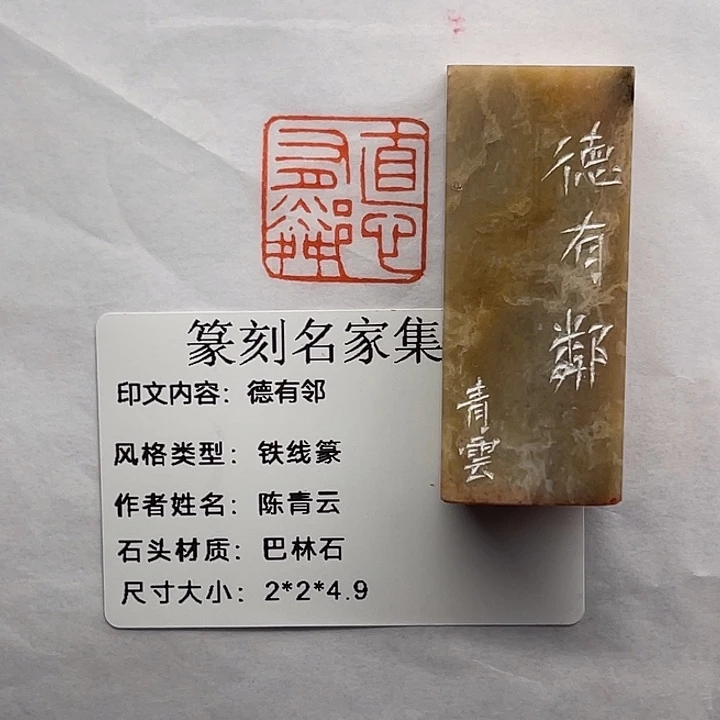 悳有鄰
篆刻名家集
印文内容：德有邻
风格类型：铁线篆
作者姓名：陈青云
石头材质：巴林石
尺寸大小：2*2*4.9
德有鄰
青雲